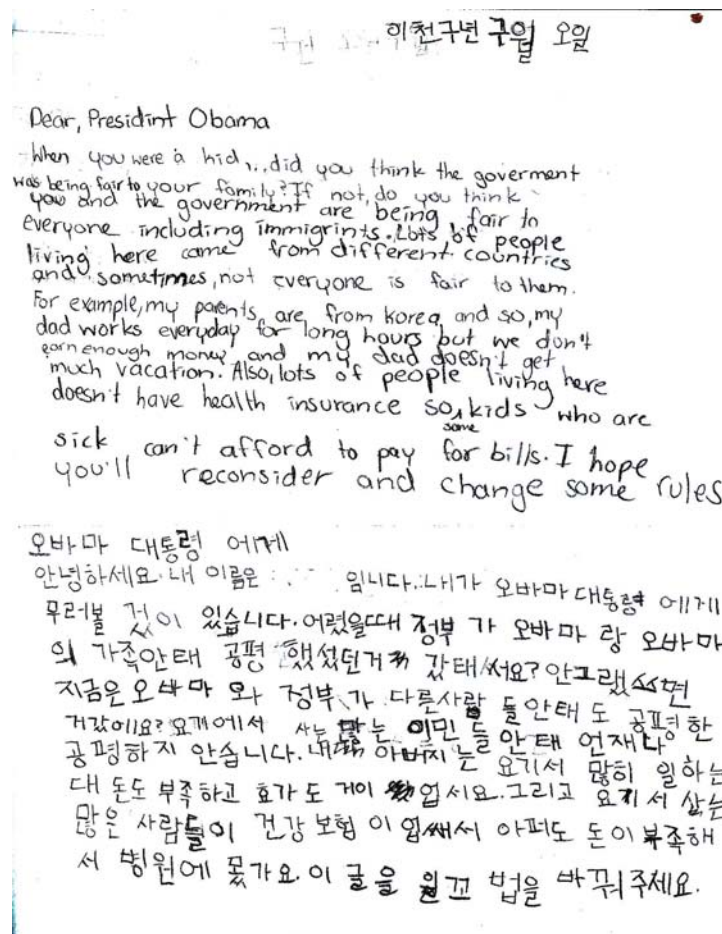 이천구년 구월 오일
Dear, Presidint Obama
When you were a kid,...did you think the goverment
was being fair to your family? If not, do you think
you and the government are being fair to
everyone including immigrints. Lots of people
living here came from different countries
and sometimes, not everyone is fair to them.
For example, my parents are from Korea and so, my
dad works everyday for long hours but we don't
earn enough money and my dad doesn't get
much vacation. Also, lots of people living here
doesn't have health insurance so, some kids who are
sick can't afford to pay for bills. I hope
you'll reconsider and change some rules
오바마 대통령 에게
안녕하세요. 내 이름은 임니다. 내가 오바마 대통령 에게
무러볼 것이 있습니다. 어렸을때 정부 가 오바마 랑 오바마
의 가족안태 공평 했섰던거 같태서요? 안그랬스면
지금은 오바마 와 정부 가 다른사람 들안태 도 공평한
거갔어요? 요기에서 사는 많는 이민 들안태 언재나
공평하지 안습니다. 아버지 는 요기서 많히 일하는
대 돈도 부족하고 휴가도 거이 업서요. 그리고 요기서 삼는
많은 사람들이 건강 보험 이 업써서 아퍼도 돈이 부족해
서 병원에 못가요. 이 글을 읽고 법을 바꿔주세요.